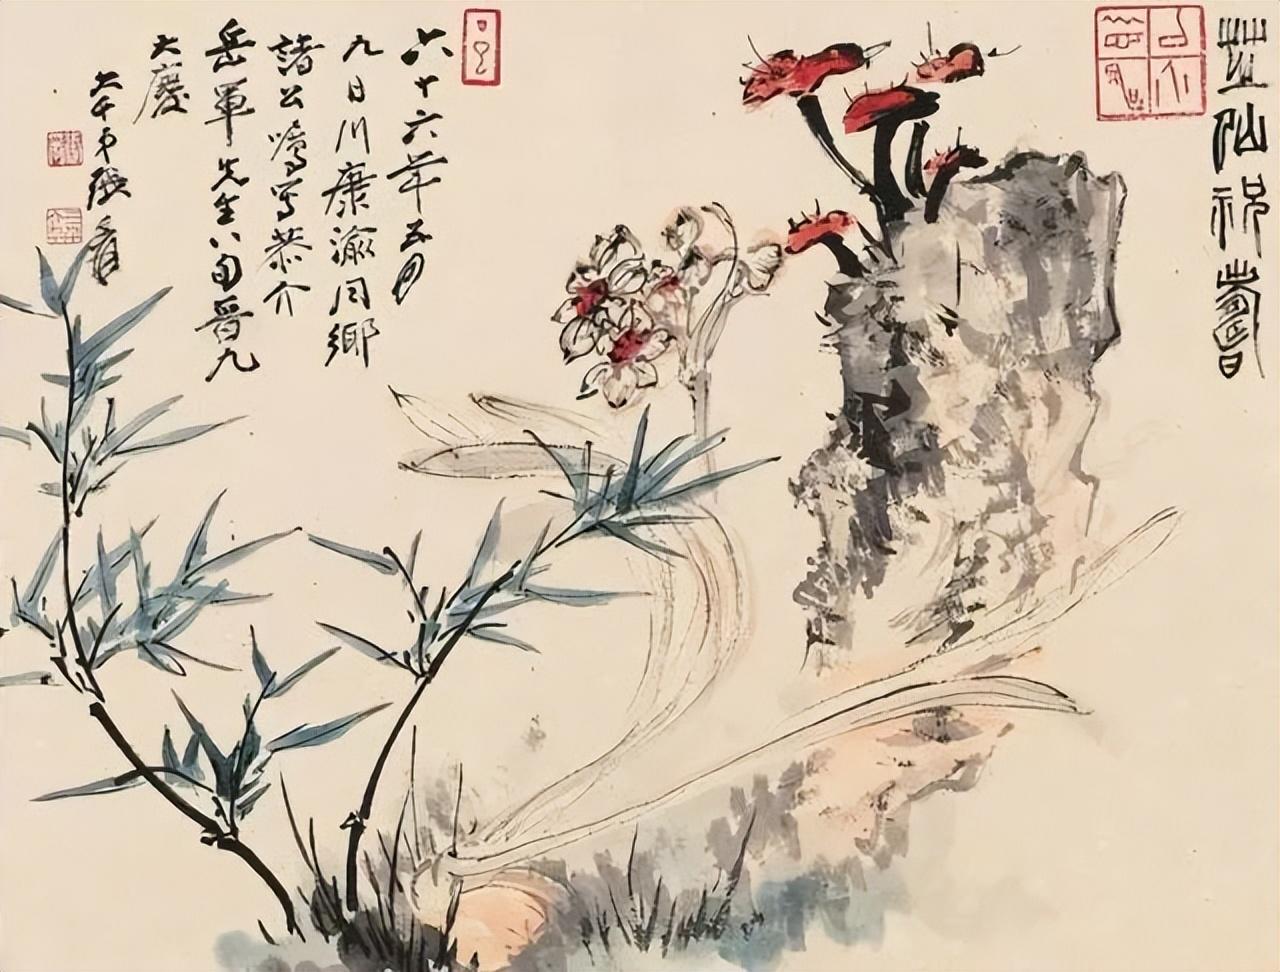 芝仙祝壽
六十六年五月
九日川康渝同鄉
諸公囑寫恭介
岳軍先生八旬晉九
大慶
大千弟張爰